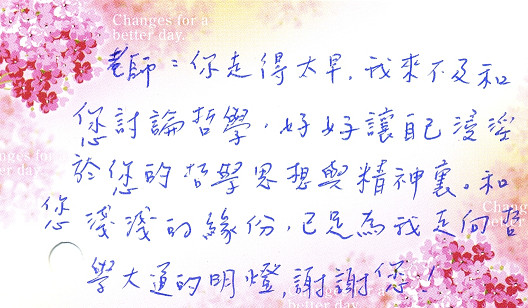 Changes for a
better day.
老師：你走得太早，我來不及和
您討論哲學，好好讓自己浸淫
於您的哲學思想與精神裏。和
您淺淺的緣份，已足為我走向哲
學大道的明燈，謝謝您！